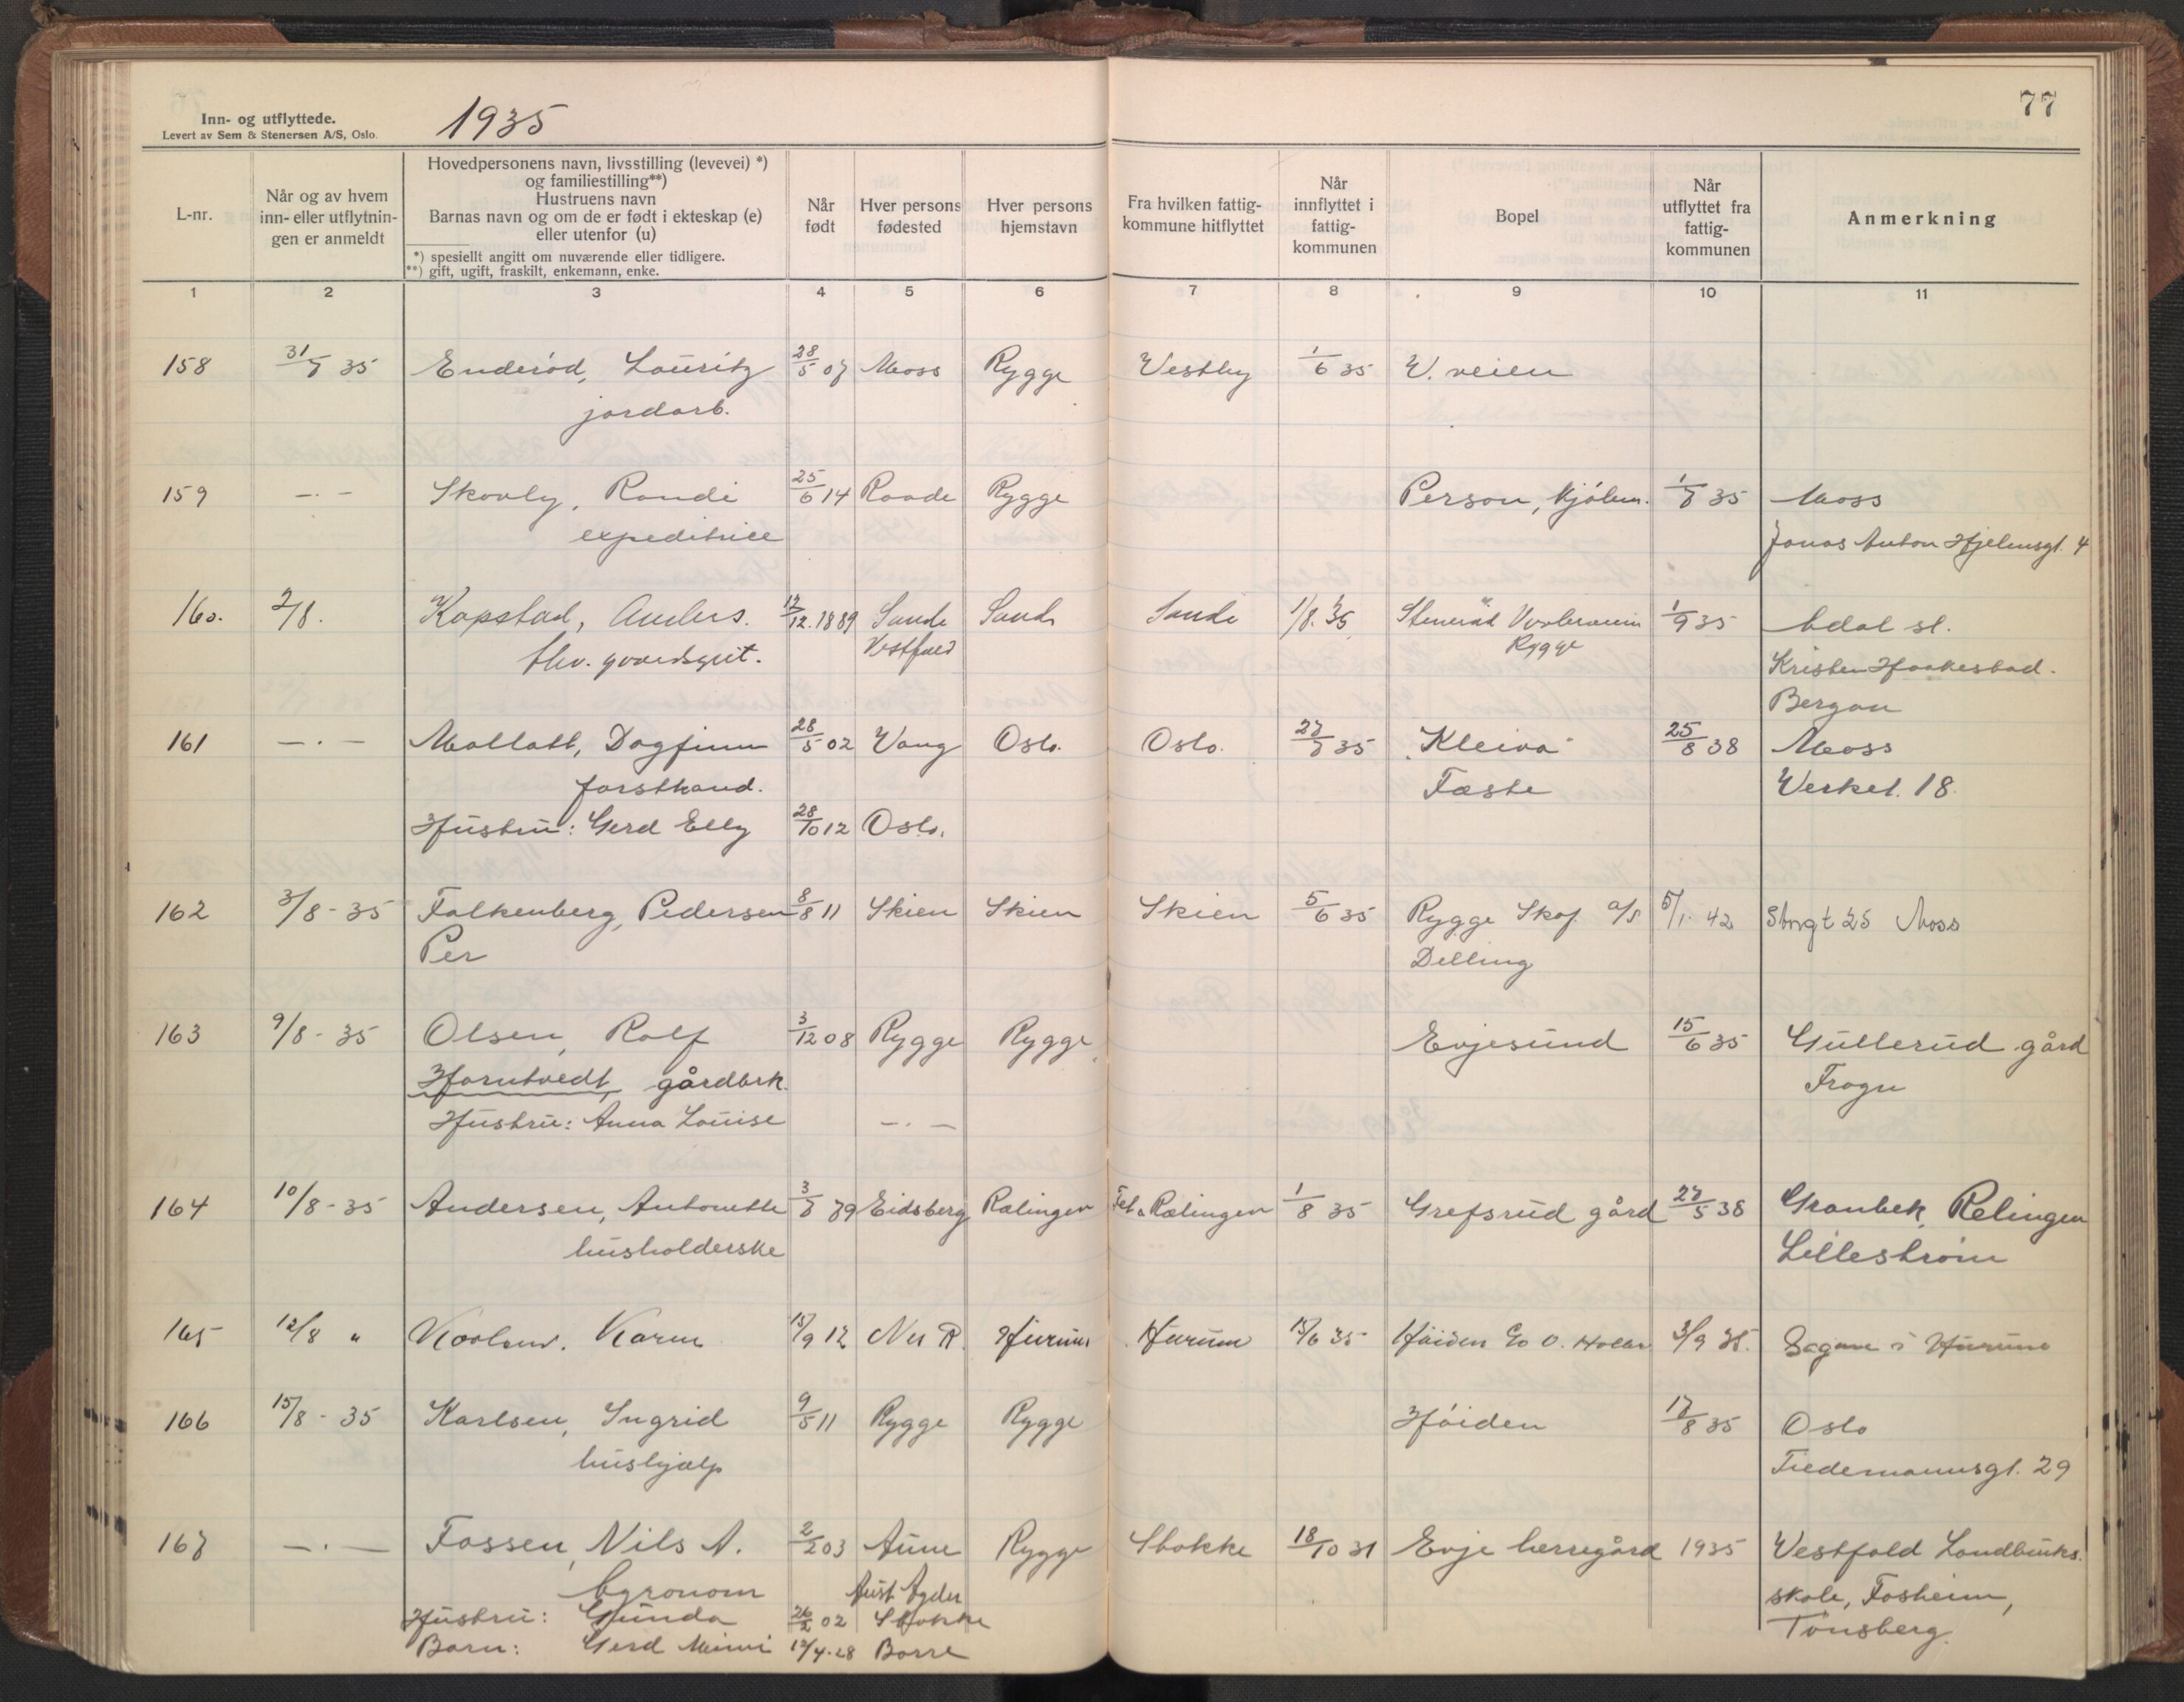 77
Inn- og utflyttede.
Levert av Sem & Stenersen A/S, Oslo.
1935
L-nr.
Når og av hvem inn- eller utflytnin- gen er anmeldt
Hovedpersonens navn, livsstilling (levevei) *)
og familiestilling**)
Hustruens navn
Barnas navn og om de er født i ekteskap (e)
eller utenfor (u)
*) spesiellt angitt om nuværende eller tidligere.
**) gift, ugift, fraskilt, enkemann, enke.
Når født
Hver persons fødested
Hver persons hjemstavn
Fra hvilken fattig- kommune hitflyttet
Når innflyttet i fattig- kommunen
Bopel
Når utflyttet fra fattig- kommunen
Anmerkning
1 2 3 4 5 6 7 8 9 10 11
158 31/7 35 Enderød, Lauritz 28/5 07 Moss Rygge Vestby 1/6 35 V. veien
jordarb.
159 —·— Skovly, Randi 25/6 14 Raade Rygge Person, Kjølen. 1/7 35 Moss
expeditrice Jonas Anton Hjelmsgt. 4
160. 2/8. Kopstad, Anders. 12.1889 Sande Sande Sande 1/8. 35 1/9 35 Adal st.
Vestfold Rygge Kristen Haakestad.
Bergan
161 —·— Mallatt, Dagfinn 28/5 02 Vang Oslo. Oslo. 27/7 35 "Kleiva" 25/8 38 Moss
forstkand. Fæste Verket. 18.
Hustru: Gerd Elly 28/10 12 Oslo.
162 3/8 - 35 Falkenberg, Pedersen 8/8 11 Skien Skien Skien 5/6 35 Rygge Skof. a/s 5/1. 42 Strgt 25 Moss
Per Dilling
163 9/8 - 35 Olsen, Rolf 3/12 08 Rygge Rygge Evjesund 15/6 35 Gullerud gård
Horntvedt, gårdbrk. Frogn
Hustru: Anna Louise —·—
164 10/8 - 35 Andersen, Antonette 3/7 79 Eidsberg Rælingen Fet, Rælingen 1/8 35 Grefsrud gård 27/5 38 Granbek, Relingen
husholderske Lillestrøm
165 12/8 " Karlsen. Karen 15/9 12 Hurum Hurum 15/6 35 Høiden 3/9 35. Sagene i Hurum
166 15/8 - 35 Karlsen, Ingrid 9/5 11 Rygge Rygge Høiden 17/8 35 Oslo
hushjælp Tiedemannsgt. 29
167 —·— Fossen, Nils A. 2/2 03 Aune Rygge Stokke 18/10 31 Evje herregård 1935 Vestfold Landbruks.
Agronom Aust Agder skole, Fosheim,
Hustru: Gunda 26/2 02 Stokke Tønsberg.
Barn: Gerd Mimi 12/4.28 Borre